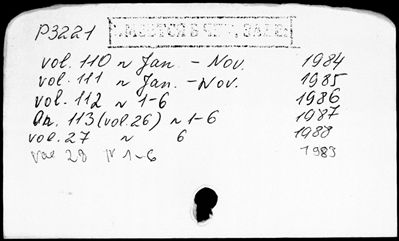 P3221
vol. 110 N Jan. - Nov. 1984
vol. 111 N Jan. - Nov. 1985
vol. 112 N 1-6 1986
113 (vol. 26) N 1-6 1987
vol. 27 N 6 1988
vol 28 N 1-6 1983